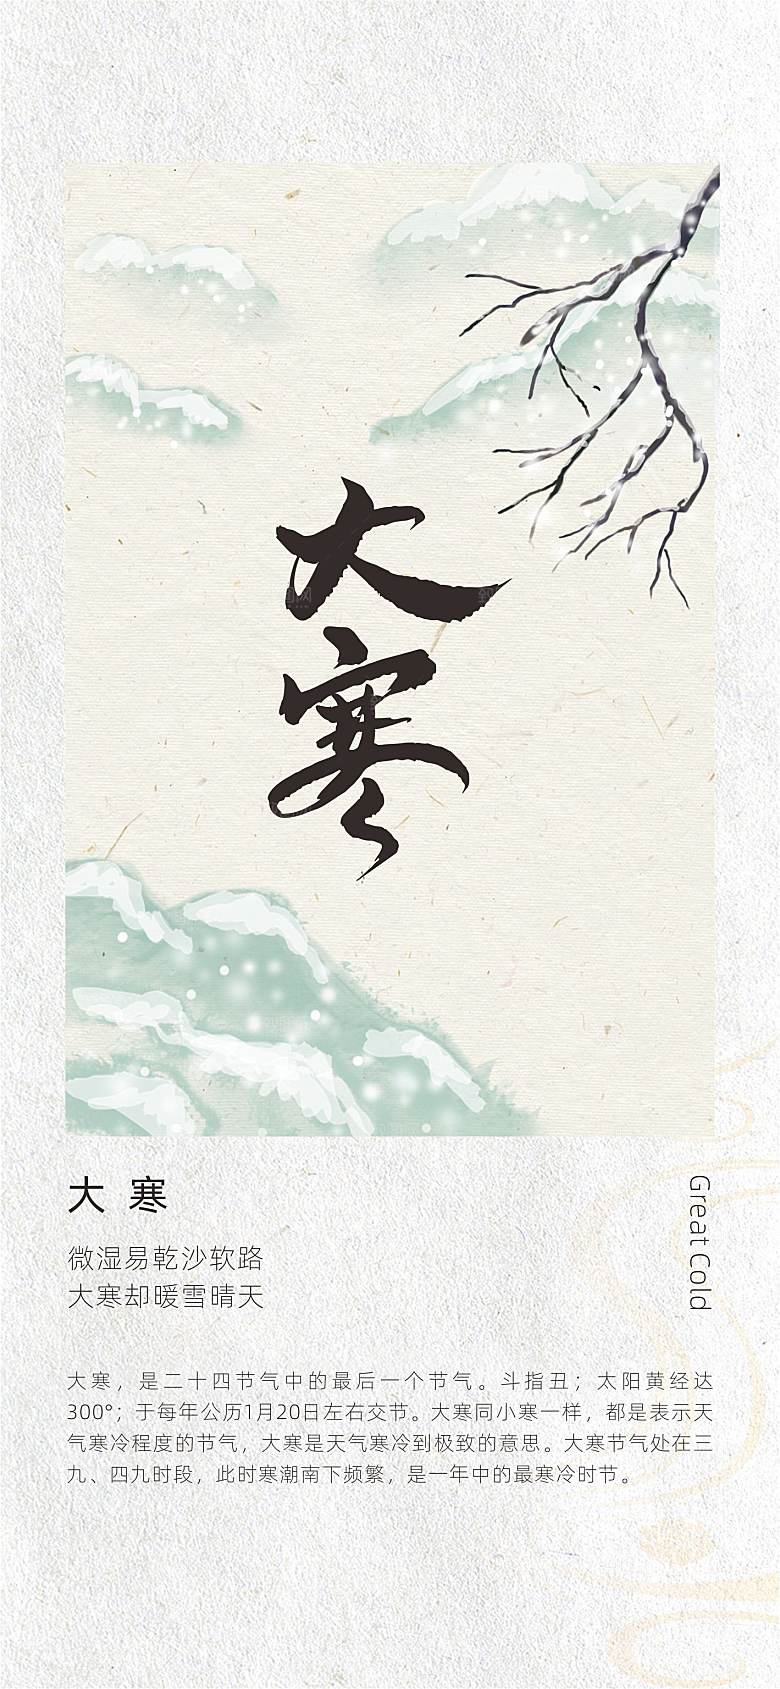 大
寒
大 寒
Great Cold
微湿易乾沙软路
大寒却暖雪晴天
大寒，是二十四节气中的最后一个节气。斗指丑；太阳黄经达
300°；于每年公历1月20日左右交节。大寒同小寒一样，都是表示天
气寒冷程度的节气，大寒是天气寒冷到极致的意思。大寒节气处在三
九、四九时段，此时寒潮南下频繁，是一年中的最寒冷时节。